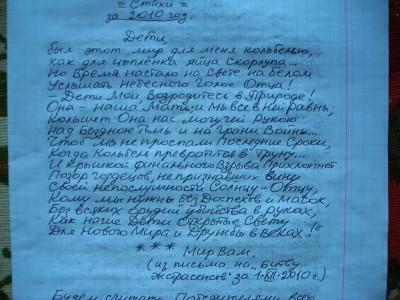 = Стихи =
за 2010 год.
Дети
был этот мир для меня колыбелью,
как для цыплёнка яйца скорлупа...
Но Время настало на Свете на белом
Услышать Небесного Голос Отца!
"Дети Мои Возродитесь в Природе!
Она - наша Мать, и Мы все в Ней равны,
Колышет Она нас могучей Рукою
Над бездною тьмы и на грани Войны...
Чтоб мы не проспали Последние Сроки,
Когда Колыбель превратится в труну...
И Крышкой Финального Взрыва Прихлопнет
Позор гордецов, не признавших вину
Своей непослушности Солнцу - Отцу,
Кому мы нужны без Доспехов и Масок,
Без всяких орудий убийства в руках,
Как нагие Дети Открытые Свету
Для Нового Мира и Дружбы в Веках!"
* * * Мир Вам.
(из письма на "Битву
Экстрасенсов" за 1-XII-2010 г.)
Будем считать Победителями всех